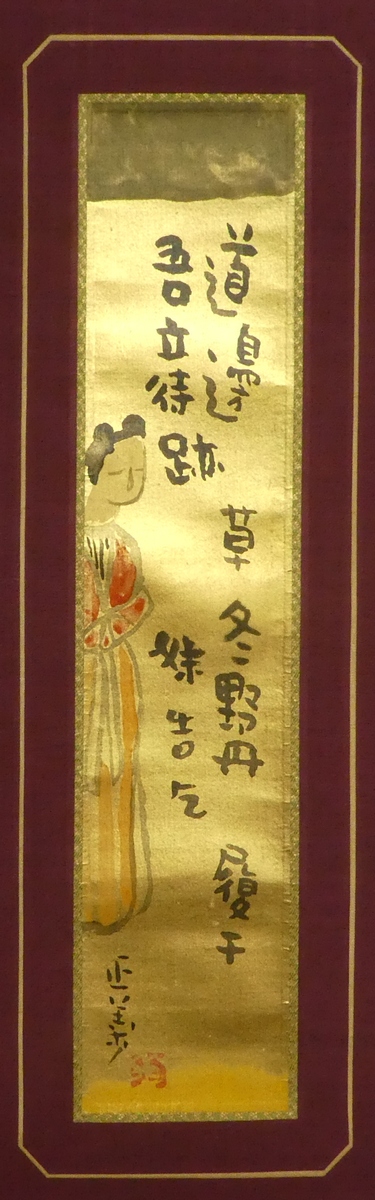 道邊 草冬野丹 履干
吾立待跡 妹告乞